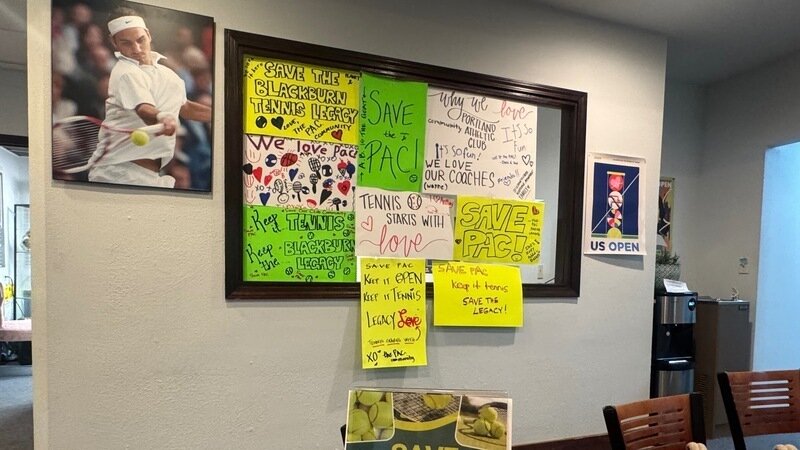 SAVE THE
BLACKBURN
TENNIS LEGACY
LOVE, THE PAC
COMMUNITY
SAVE
the
PAC!
Why we love
PORTLAND
community
ATHLETIC
CLUB
It's So
fun
It's SO fun!
WE LOVE
OUR COACHES
We love Pac
XO
TENNIS
STARTS WITH
love
SAVE
PAC!
Keep it TENNIS
Keep the BLACKBURN
LEGACY
SAVE PAC
KEEP IT OPEN
KEEP IT TENNIS
LEGACY Love
XO THE PAC
community
SAVE PAC
Keep it tennis
SAVE THE
LEGACY!
US OPEN
SAVE